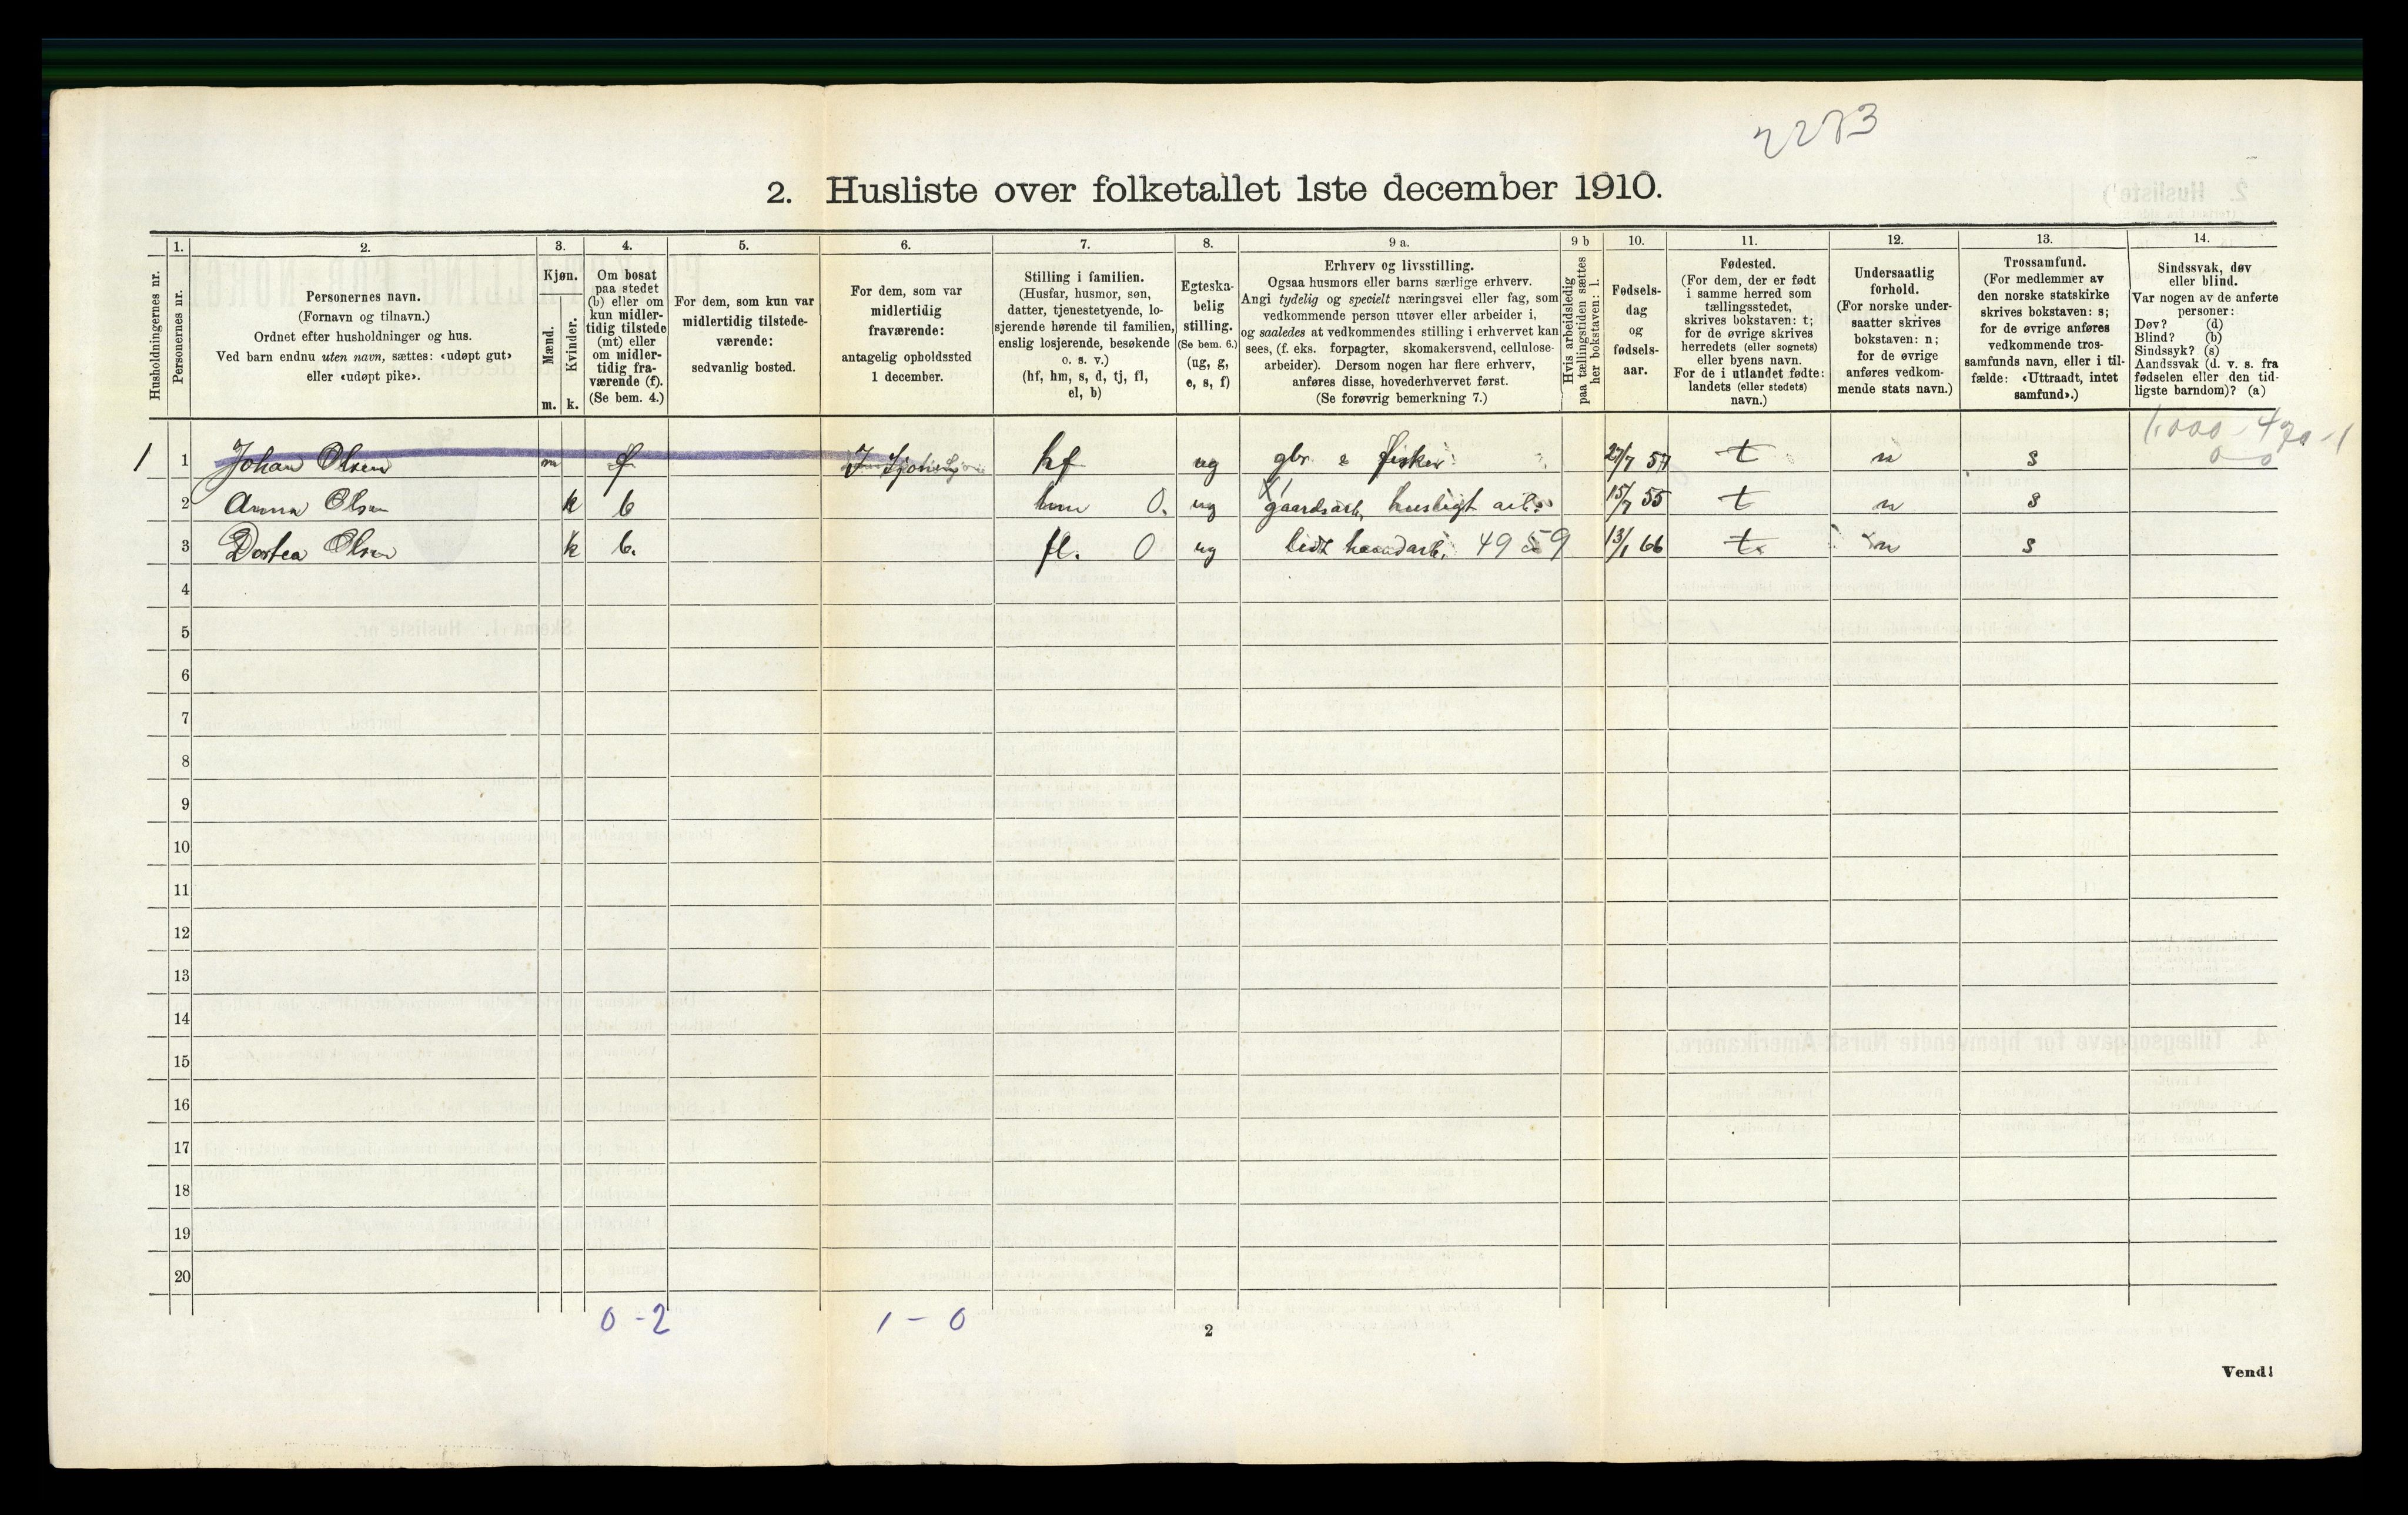 2283
2. Husliste over folketallet 1ste december 1910.
Husholdningernes nr.
1.
Personernes nr.
2.
Personernes navn.
(Fornavn og tilnavn.)
Ordnet efter husholdninger og hus.
Ved barn endnu uten navn, sættes: «udøpt gut»
eller «udøpt pike».
3.
Kjøn.
Mænd.
Kvinder.
m. k.
4.
Om bosat
paa stedet
(b) eller om
kun midler-
tidig tilstede
(mt) eller
om midler-
tidig fra-
værende (f).
(Se bem. 4.)
5.
For dem, som kun var
midlertidig tilstede-
værende:
sedvanlig bosted.
6.
For dem, som var
midlertidig
fraværende:
antagelig opholdssted
1 december.
7.
Stilling i familien.
(Husfar, husmor, søn,
datter, tjenestetyende, lo-
sjerende hørende til familien,
enslig losjerende, besøkende
o. s. v.)
(hf, hm, s, d, tj, fl,
el, b)
8.
Egteska-
belig
stilling.
(Se bem. 6.)
(ug, g,
e, s, f)
9 a.
Erhverv og livsstilling.
Ogsaa husmors eller barns særlige erhverv.
Angi tydelig og specielt næringsvei eller fag, som
vedkommende person utøver eller arbeider i,
og saaledes at vedkommendes stilling i erhvervet kan
sees, (f. eks. forpagter, skomakersvend, cellulose-
arbeider). Dersom nogen har flere erhverv,
anføres disse, hovederhvervet først.
(Se forøvrig bemerkning 7.)
9 b
Hvis arbeidsledig
paa tællingstiden sættes
her bokstaven: l.
10.
Fødsels-
dag
og
fødsels-
aar.
11.
Fødested.
(For dem, der er født
i samme herred som
tællingsstedet,
skrives bokstaven: t;
for de øvrige skrives
herredets (eller sognets)
eller byens navn.
For de i utlandet fødte:
landets (eller stedets)
navn.)
12.
Undersaatlig
forhold.
(For norske under-
saatter skrives
bokstaven: n;
for de øvrige
anføres vedkom-
mende stats navn.)
13.
Trossamfund.
(For medlemmer av
den norske statskirke
skrives bokstaven: s;
for de øvrige anføres
vedkommende tros-
samfunds navn, eller i til-
fælde: «Uttraadt, intet
samfund».)
14.
Sindssvak, døv
eller blind.
Var nogen av de anførte
personer:
Døv? (d)
Blind? (b)
Sindssyk? (s)
Aandssvak (d. v. s. fra
fødselen eller den tid-
ligste barndom)? (a)
1 1 Johan Olsen m f hf ug gbr & fisker 27/7 57 t n s
0-0
2 Anna Olsen k b hm 0. ug gaardsarb, husligt arb. 15/7 55 t n s
3 Dortea Olsen k b. fl. 0 ug lidt haandarb. 13/1 66 t n s
4
5
6
7
8
9
10
11
12
13
14
15
16
17
18
19
20
0-2 1-0
2
Vend!